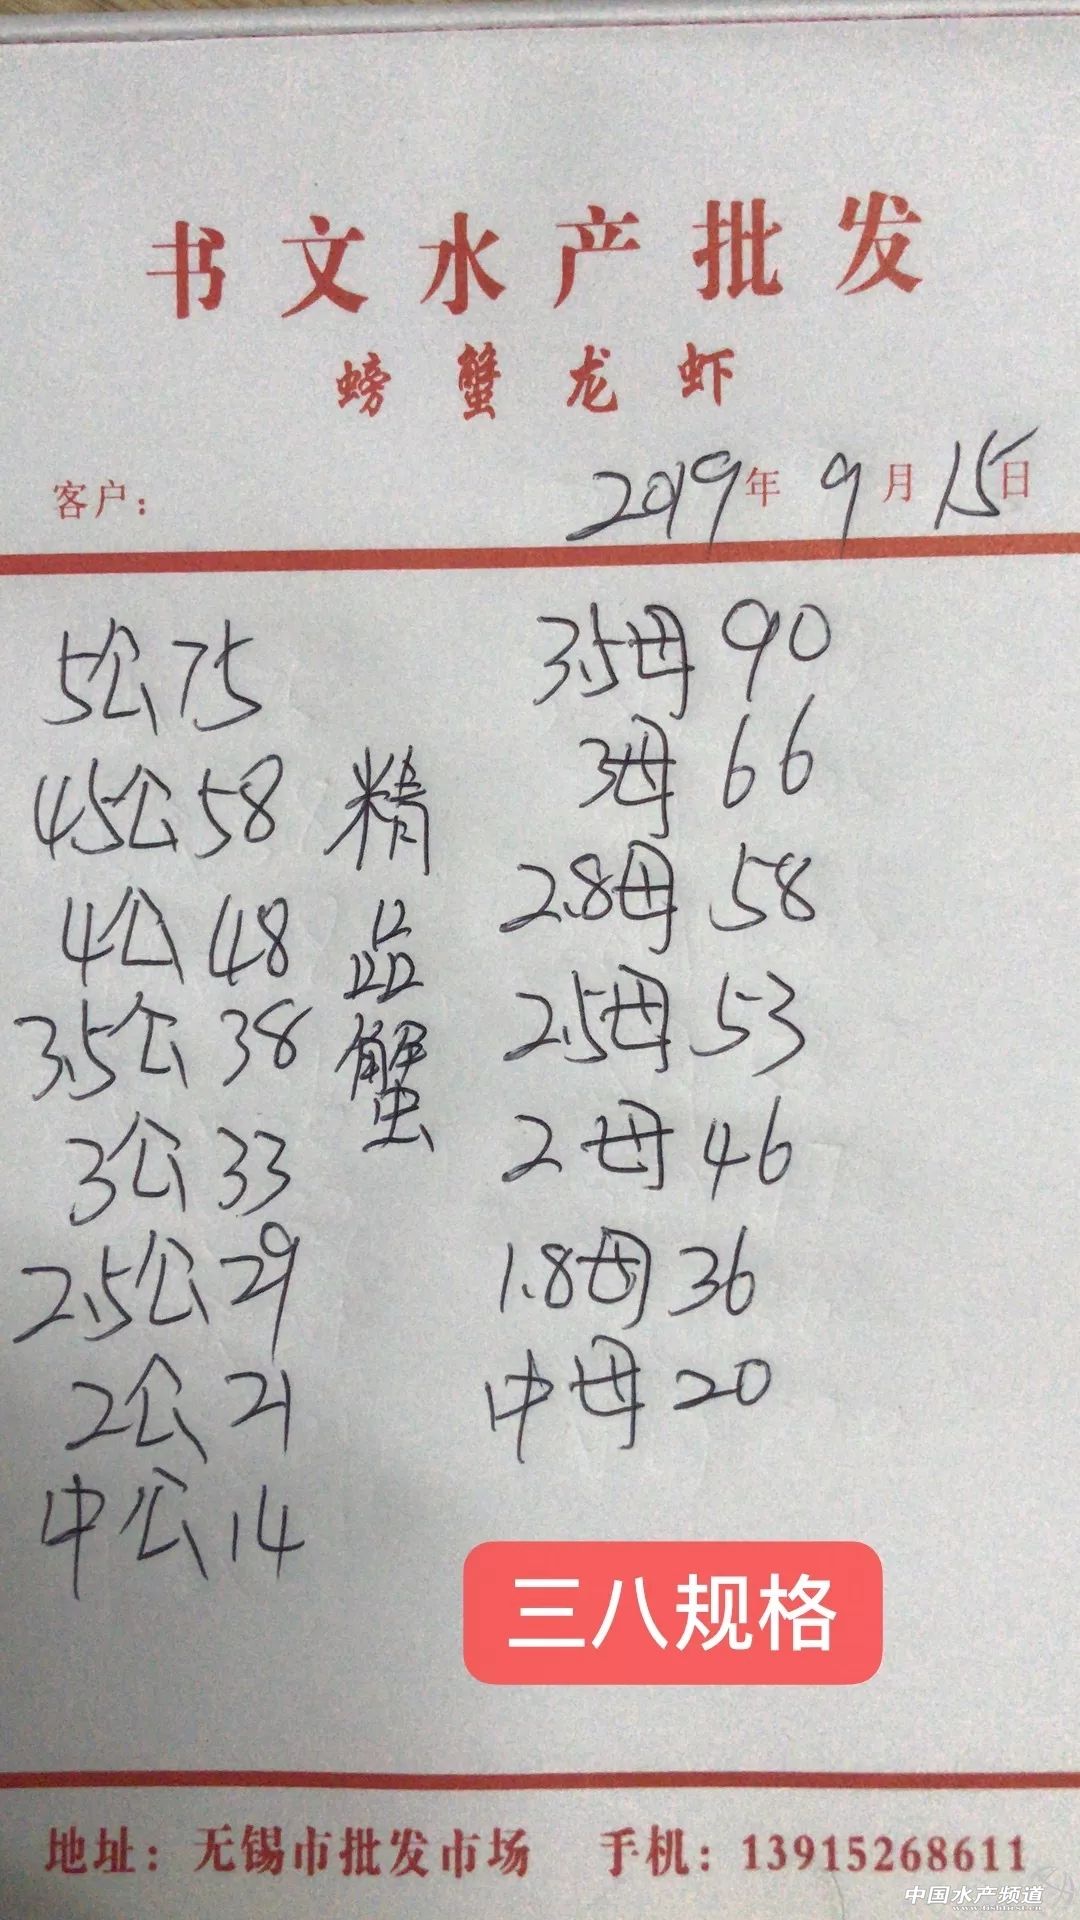 书文水产批发
螃蟹龙虾
客户：
2019年 9月 15日
5公 75
4.5公 58
4公 48
3.5公 38
3公 33
2.5公 29
2公 21
中公 14
精品蟹
3.5母 90
3母 66
2.8母 58
2.5母 53
2母 46
1.8母 36
中母 20
三八规格
地址：无锡市批发市场 手机：13915268611
中国水产频道
www.fishfirst.cn